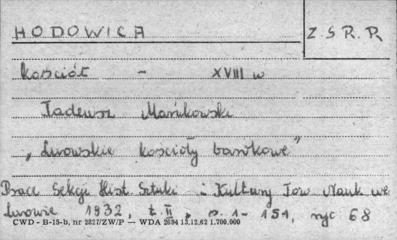 HODOWICA
Z.S.R.R
Kościół - XVIII w
Tadeusz Mańkowski
„Lwowskie kościoły barokowe"
Prace Sekcji Hist. Sztuki i Kultury Tow. Nauk we
Lwowie 1932, t. II, s. 1-151, ryc 68
CWD - B-15-b, nr 2827/ZW/P — WDA 2694 13.12.62 1.700.000